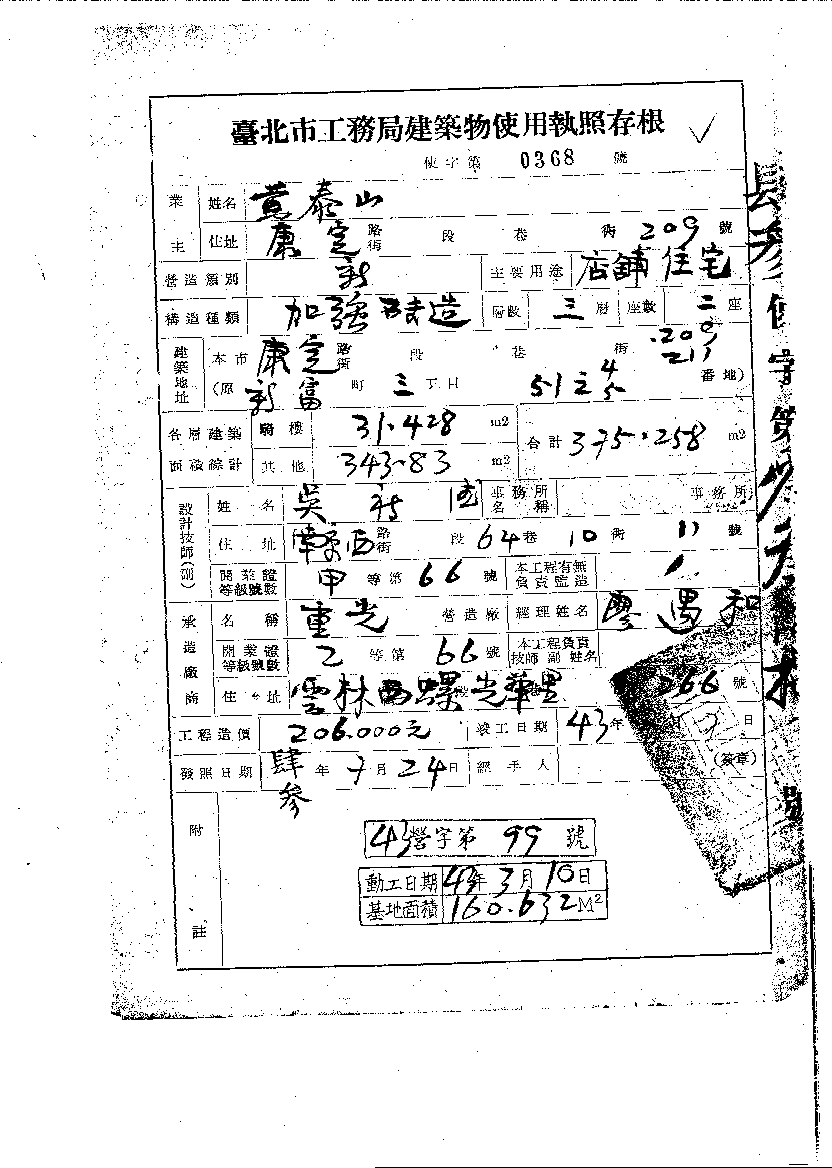 臺北市工務局建築物使用執照存根
使字第 0368 號
業主 姓名 黃泰山
住址 康定 路街 段 巷 街 209 號
營造類別 新 主要用途 店舖住宅
構造種類 加強磚造 層數 三 層 座數 二 座
建築地址 本市 康定 路街 段 巷 街 209 211
(原 新富 町 三 丁目 51之4 5 番地)
各層建築面積綜計 騎樓 31.428 m2 合計 375.258 m2
其他 343.83 m2
設計技師(副) 姓名 吳 事務所名稱 事務所
住址 路街 段 64 巷 10 街 11 號
開業證等級號數 甲 等第 66 號 本工程有無負責監造
承造廠商 名稱 重光 營造廠 經理姓名 廖遇和
開業證等級號數 乙 等第 66 號 本工程負責技師副姓名
住址 雲林西螺光華里 266 號
工程造價 206.000元 竣工日期 43年 日
發照日期 肆參 年 7月24日 經手人 (簽章)
附註
43營字第 99 號
動工日期 43年3月10日
基地面積 160.632 M²
使字第
號